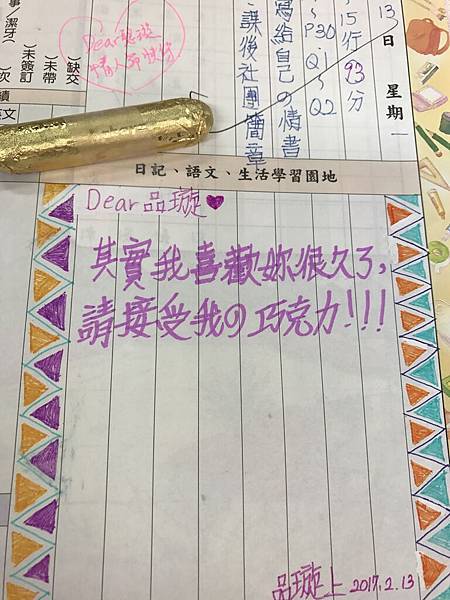 13日 星期一
15行 93分
~P30.Q1~Q2
寫給自己の情書
課後社團簡章
缺交
)未帶
)未簽訂
)次
Dear 品璇
情人節快樂
日記、語文、生活學習園地
Dear 品璇♥
其實我喜歡妳很久了,
請接受我の巧克力!!!
品璇上 2017.2.13